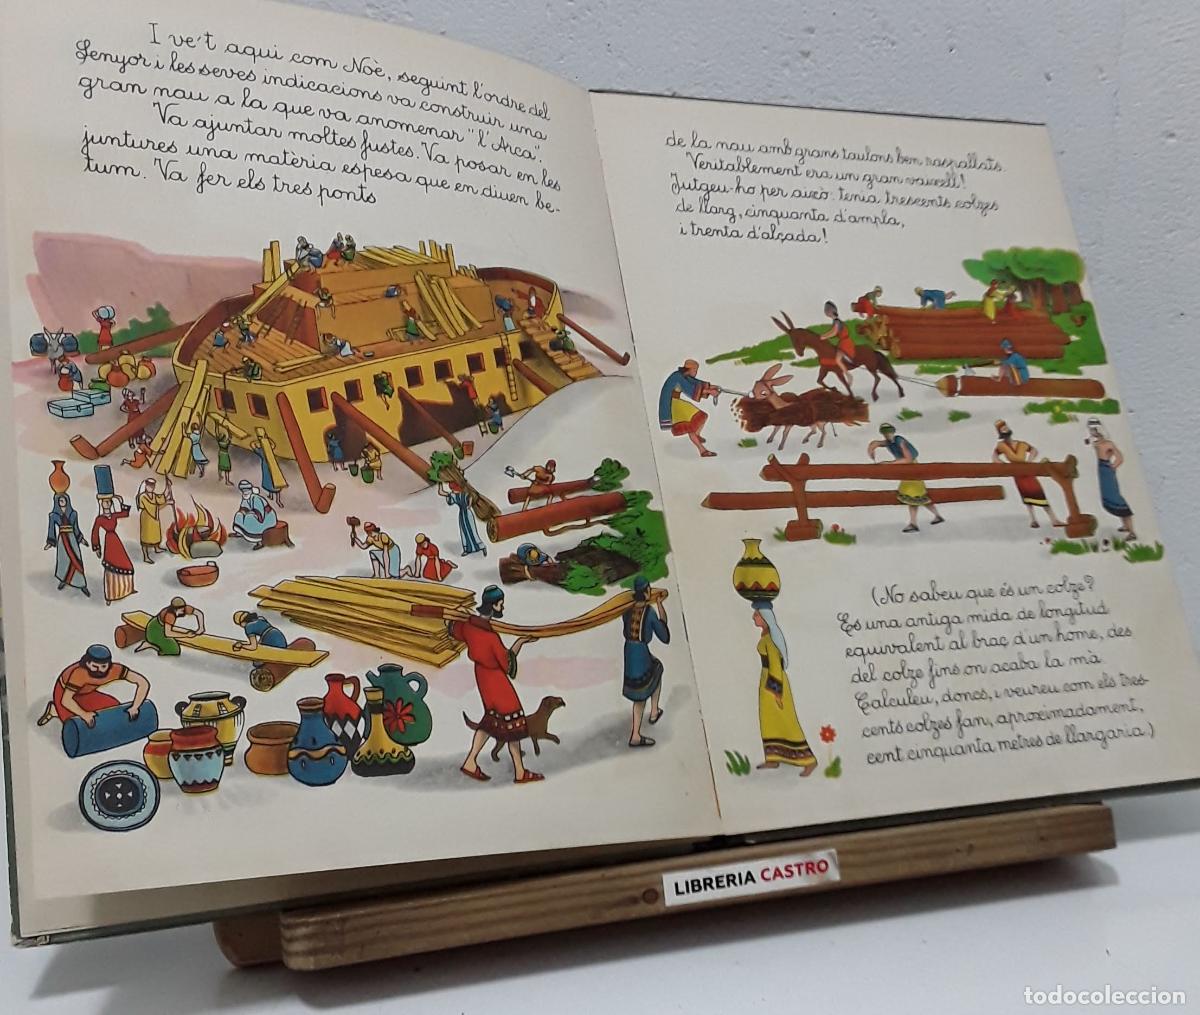 I ve't aqui com Noè, seguint l'ordre del
Senyor i les seves indicacions va construir una
gran nau a la que va anomenar "l'Arca".
Va ajuntar moltes fustes. Va posar en les
juntures una matèria espesa que en diuen be-
tum. Va fer els tres ponts
de la nau amb grans taulons ben raspallats.
Veritablement era un gran vaixell!
Jutgeu-ho per això: tenia trescents colzes
de llarg, cinquanta d'ampla,
i trenta d'alçada!
(No sabeu que és un colze?
Es una antiga mida de longitud
equivalent al braç d'un home, des
del colze fins on acaba la mà.
Calculeu, doncs, i veureu com els tres-
cents colzes fan, aproximadament,
cent cinquanta metres de llargaria.)
LIBRERIA CASTRO
todocoleccion